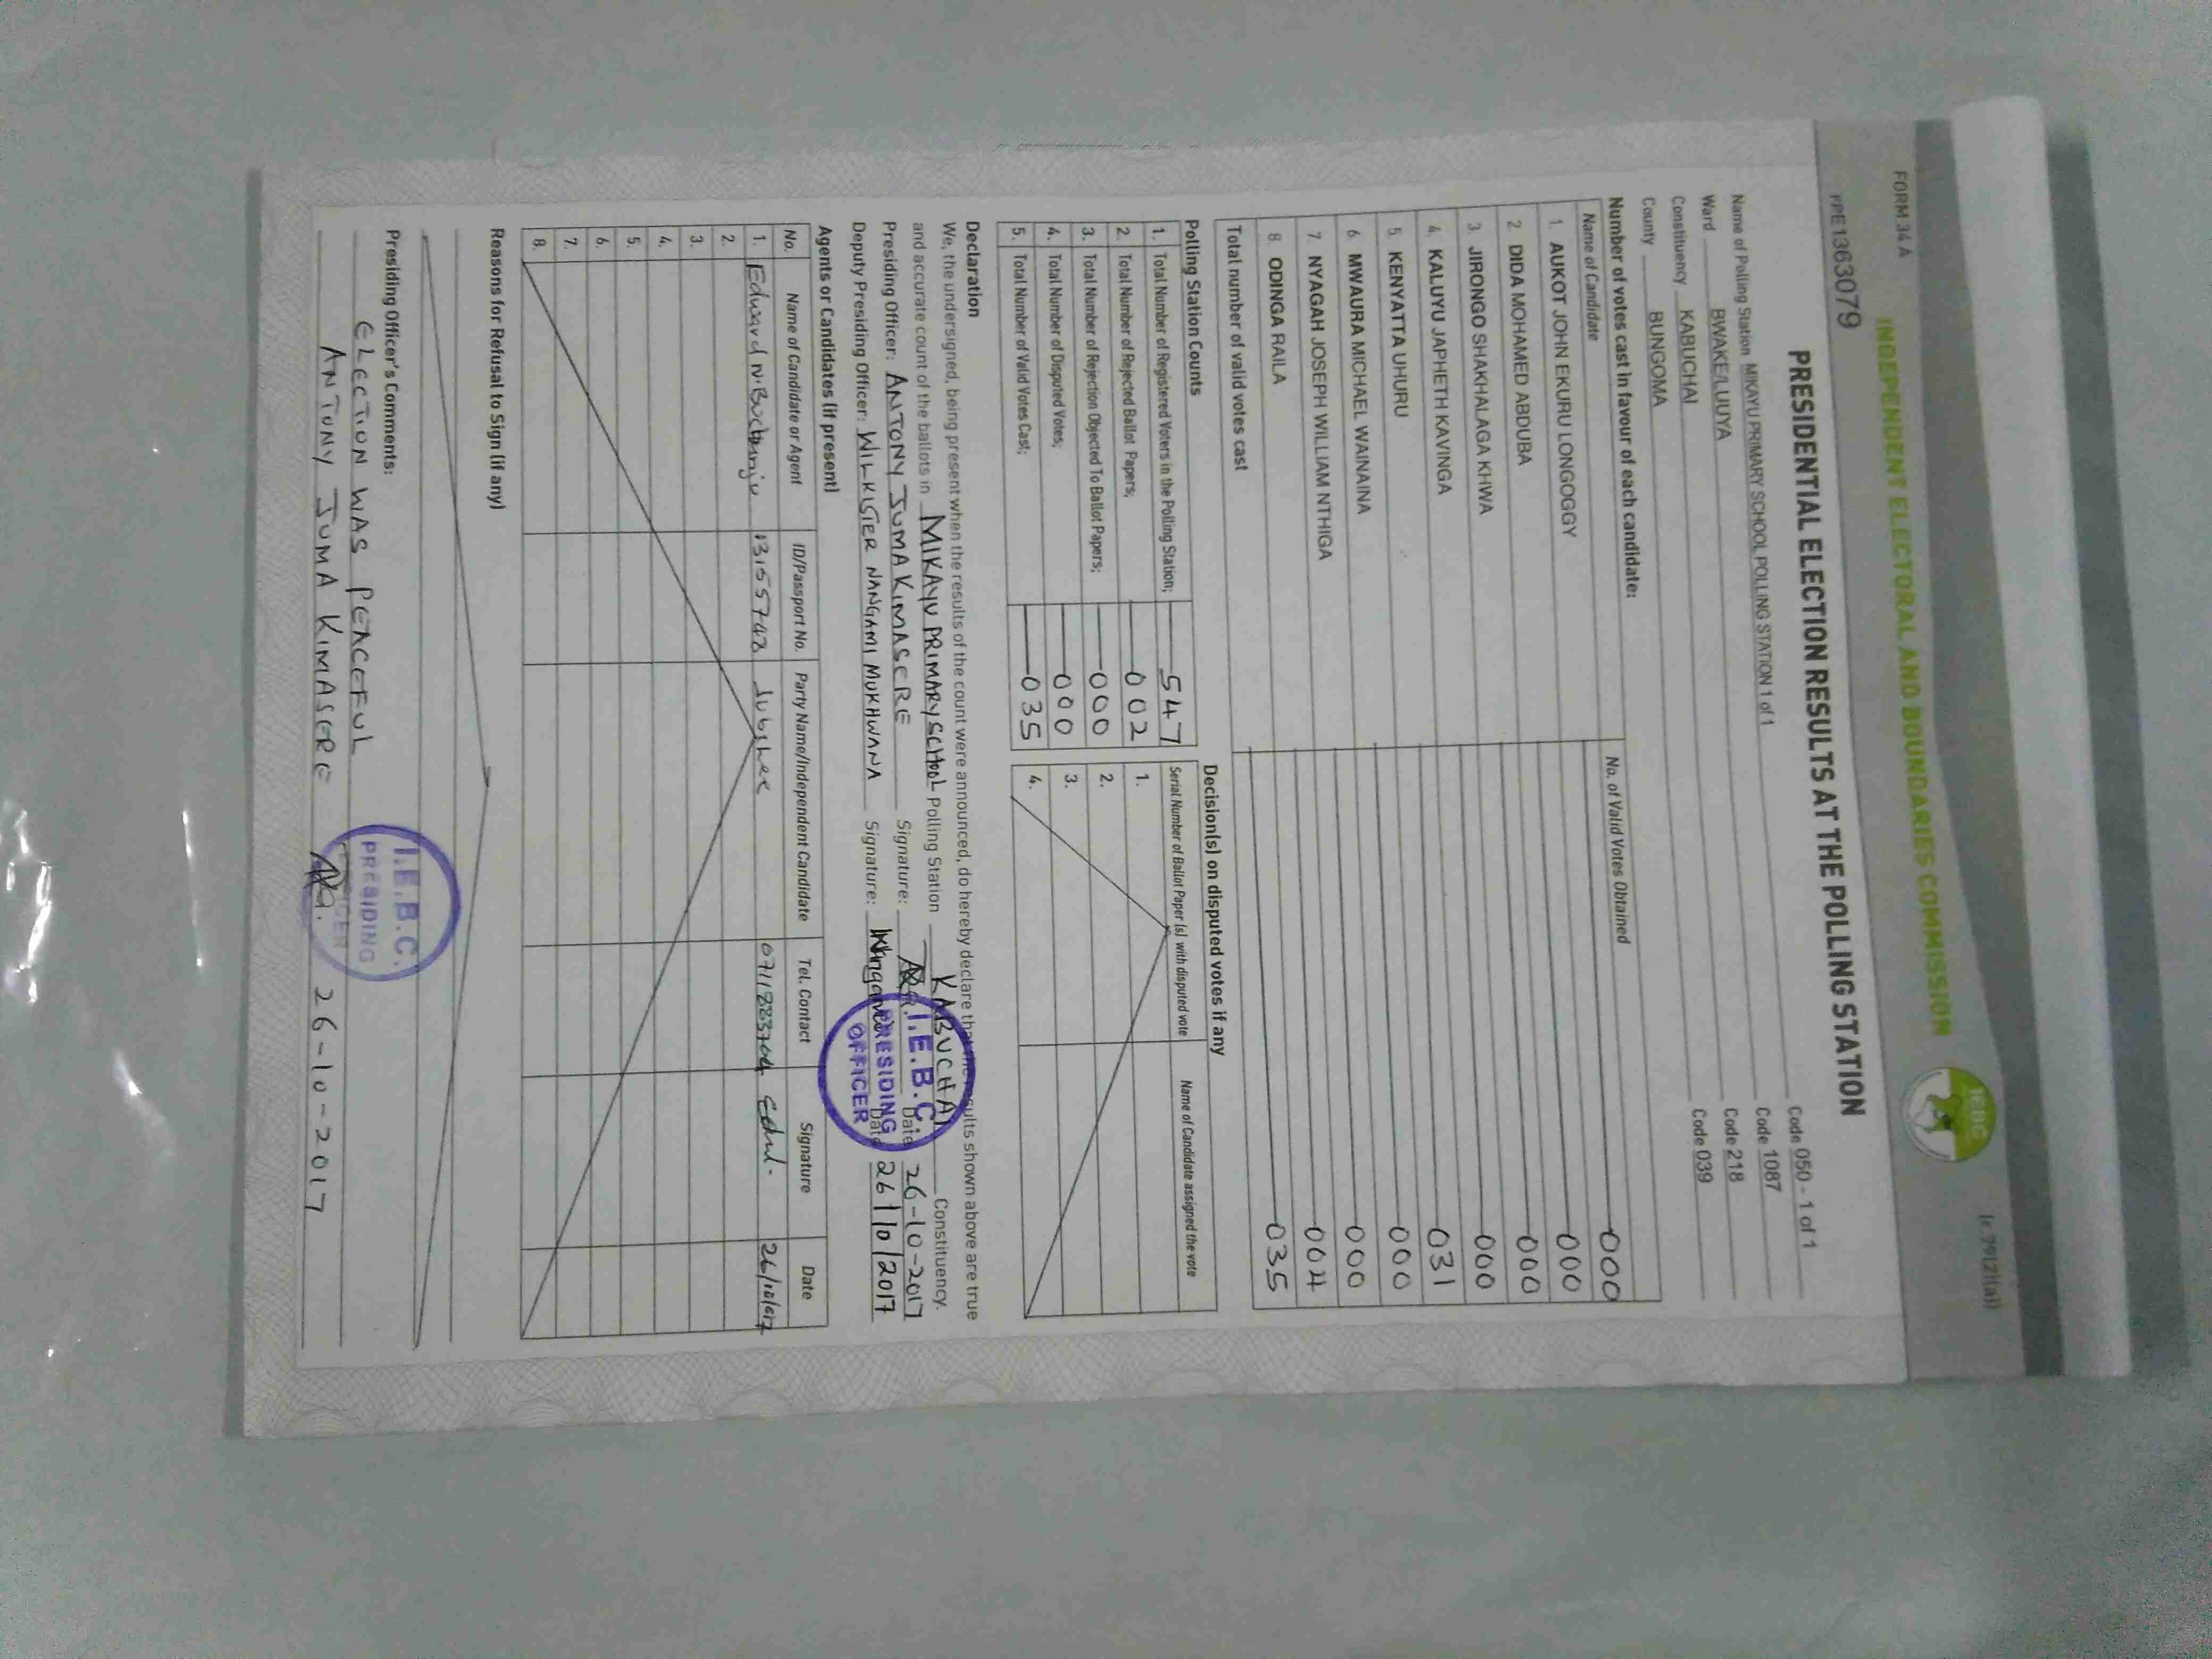 FORM 34 A
(r.79(2)(a))
INDEPENDENT ELECTORAL AND BOUNDARIES COMMISSION
IEBC
PRESIDENTIAL ELECTION RESULTS AT THE POLLING STATION
Name of Polling Station MIKAYU PRIMARY SCHOOL POLLING STATION 1 of 1 Code 050 - 1 of 1
Ward BWAKE/LUUYA Code 1087
Constituency KABUCHAI Code 218
County BUNGOMA Code 039
Number of votes cast in favour of each candidate:
Name of Candidate No. of Valid Votes Obtained
1. AUKOT JOHN EKURU LONGOGGY 000
2 DIDA MOHAMED ABDUBA 000
3. JIRONGO SHAKHALAGA KHWA 000
4. KALUYU JAPHETH KAVINGA 000
5. KENYATTA UHURU 031
6. MWAURA MICHAEL WAINAINA 000
7. NYAGAH JOSEPH WILLIAM NTHIGA 000
8. ODINGA RAILA 004
Total number of valid votes cast 035
Polling Station Counts
1. Total Number of Registered Voters in the Polling Station; 547
2. Total Number of Rejected Ballot Papers; 002
3. Total Number of Rejection Objected To Ballot Papers; 000
4. Total Number of Disputed Votes; 000
5. Total Number of Valid Votes Cast; 035
Decision(s) on disputed votes if any
Serial Number of Ballot Paper (s) with disputed vote Name of Candidate assigned the vote
1.
2.
3.
4.
Declaration
We, the undersigned, being present when the results of the count were announced, do hereby declare that the results shown above are true
and accurate count of the ballots in MIKAYU PRIMARY SCHOOL Polling Station KABUCHAI Constituency.
Presiding Officer: ANTONY JUMA KIMASERE Signature: Date 26-10-2017
Deputy Presiding Officer: NANGAMI MUKHWANA Signature: Date 26/10/2017
I.E.B.C.
PRESIDING
OFFICER
Agents or Candidates (if present)
No. Name of Candidate or Agent ID/Passport No. Party Name/Independent Candidate Tel. Contact Signature Date
1. Edward N. Jubilee
2.
3.
4.
5.
6.
7.
8.
Reasons for Refusal to Sign (if any)
Presiding Officer's Comments:
ELECTION WAS PEACEFUL
ANTONY JUMA KIMASERE 26-10-2017
I.E.B.C.
PRESIDING